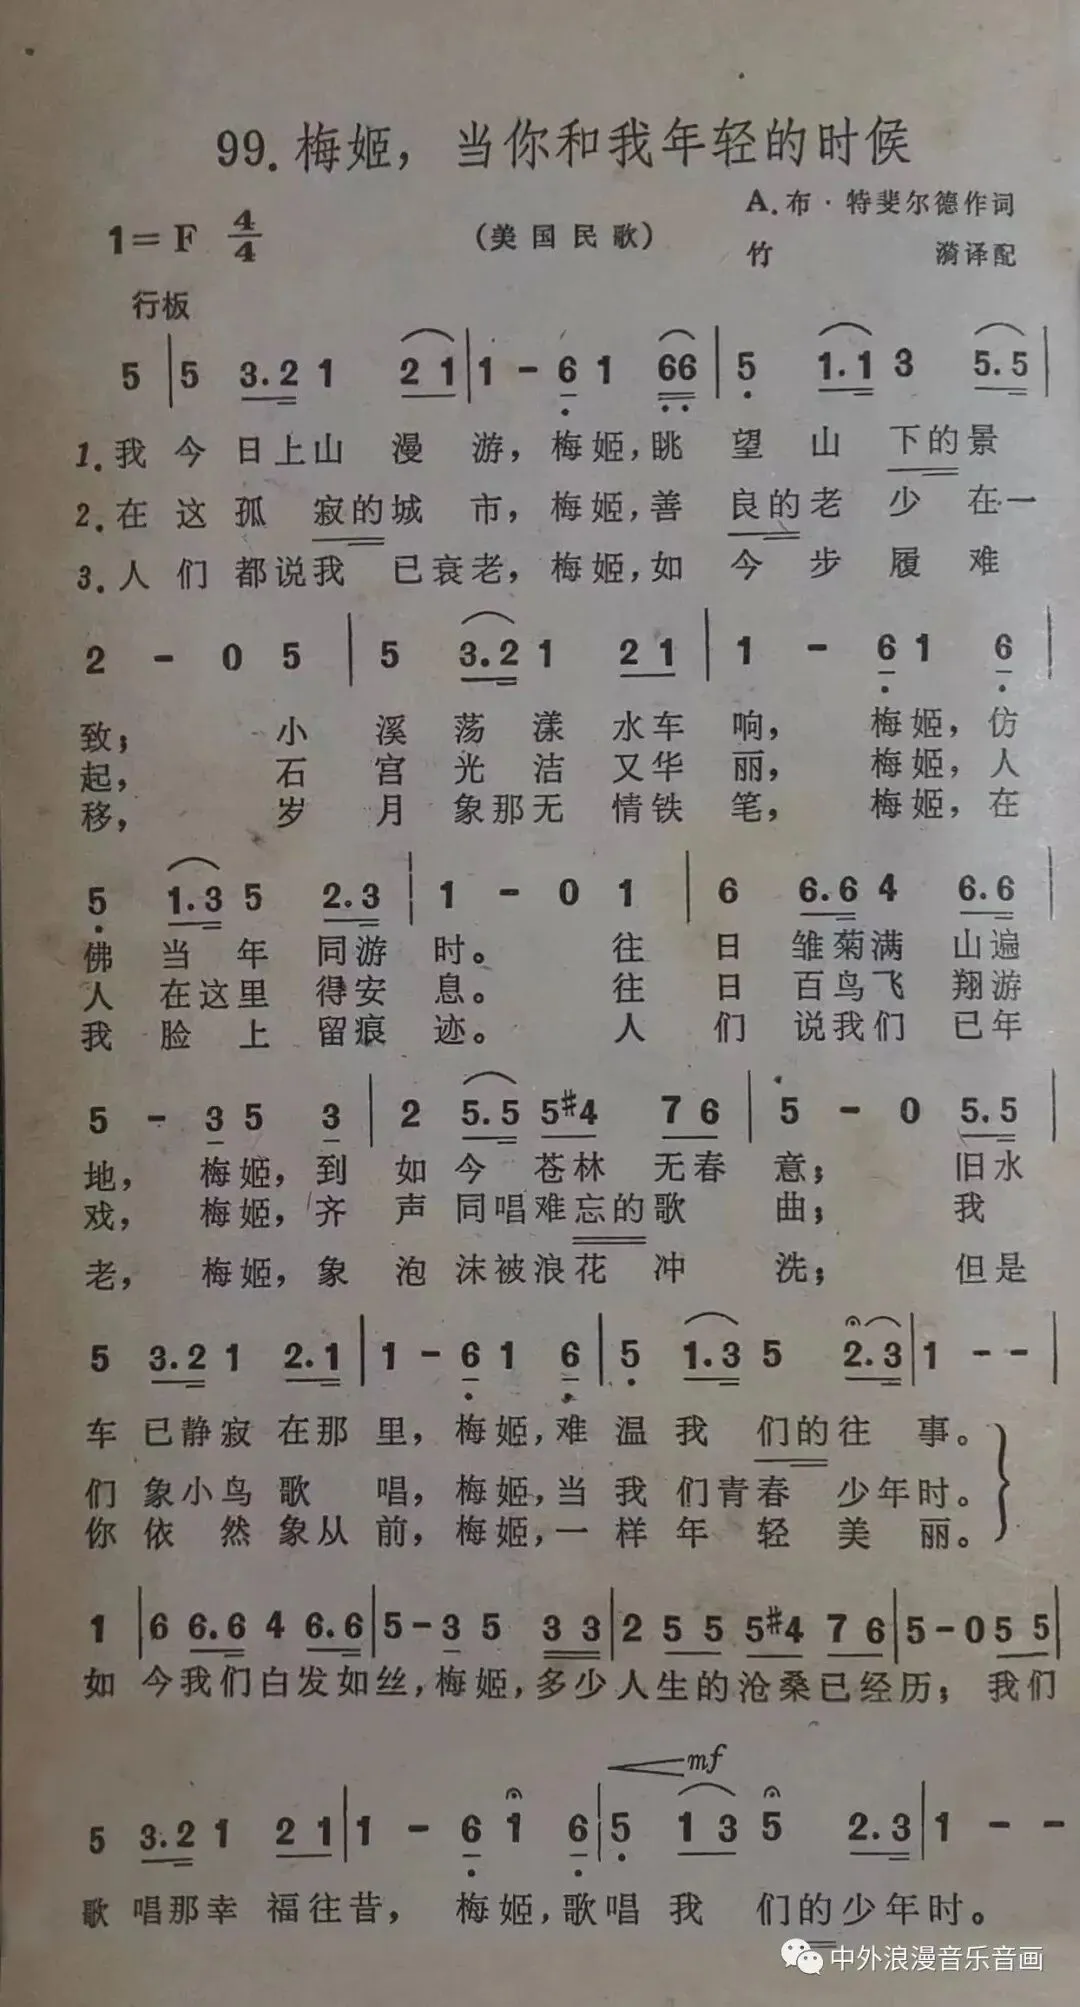 99. 梅姬，当你和我年轻的时候
A. 布·特斐尔德作词
1=F 4/4
（美国民歌）
竹 漪译配
行板
5 | 5 3.2 1 2 1 | 1 - 6 1 66 | 5 1.1 3 5.5 |
1. 我今日上山漫游，梅姬，眺望山下的景
2. 在这孤寂的城市，梅姬，善良的老少在一
3. 人们都说我已衰老，梅姬，如今步履难
2 - 0 5 | 5 3.2 1 2 1 | 1 - 6 1 6 |
致； 小溪荡漾水车响，梅姬，仿
起， 石宫光洁又华丽，梅姬，人
移， 岁月象那无情铁笔，梅姬，在
5 1.3 5 2.3 | 1 - 0 1 | 6 6.6 4 6.6 |
佛当年同游时。 往日雏菊满山遍
人在这里得安息。 往日百鸟飞翔游
我脸上留痕迹。 人们说我们已年
5 - 3 5 3 | 2 5.5 5#4 7 6 | 5 - 0 5.5 |
地，梅姬，到如今苍林无春意； 旧水
戏，梅姬，齐声同唱难忘的歌曲； 我
老，梅姬，象泡沫被浪花冲洗； 但是
5 3.2 1 2.1 | 1 - 6 1 6 | 5 1.3 5 2.3 | 1 - - |
车已静寂在那里，梅姬，难温我们的往事。
们象小鸟歌唱，梅姬，当我们青春少年时。
你依然象从前，梅姬，一样年轻美丽。
1 | 6 6.6 4 6.6 | 5 - 3 5 3 3 | 2 5 5 5#4 7 6 | 5 - 0 5 5 |
如今我们白发如丝，梅姬，多少人生的沧桑已经历；我们
mf
5 3.2 1 2 1 | 1 - 6 1 6 | 5 1 3 5 2.3 | 1 - -
歌唱那幸福往昔，梅姬，歌唱我们的少年时。
中外浪漫音乐音画